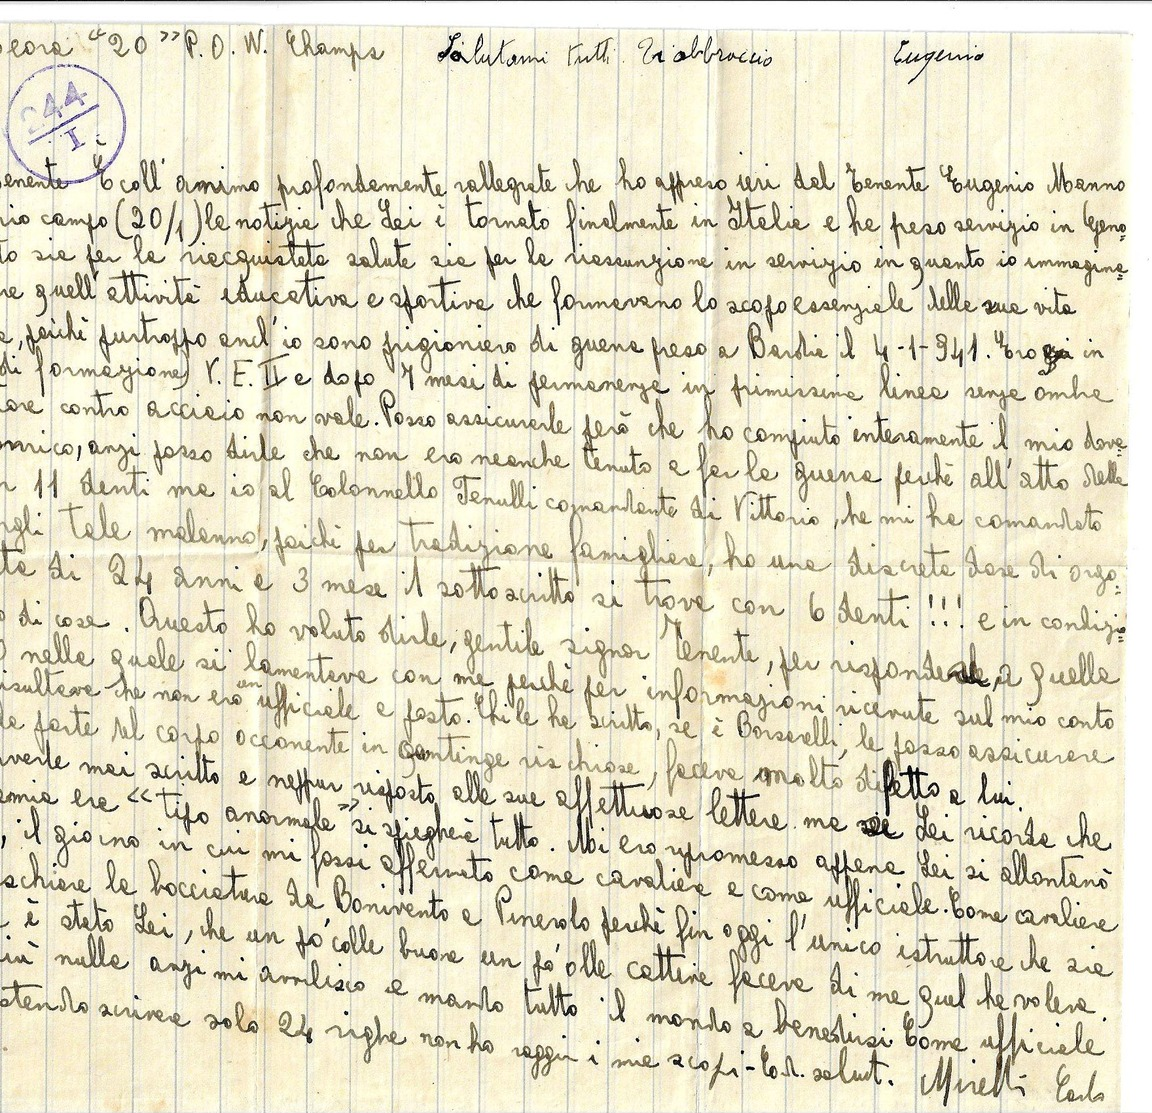 "20" P.O.W. Champs Salutami tutti. Ti abbraccio Eugenio
244
I
È coll'animo profondamente rallegrato che ho appreso ieri dal Tenente Eugenio Manno
campo (20/1) la notizia che Lei è tornato finalmente in Italia e ha peso servizio in Geno=
sia per la riacquistata salute sia per la riassunzione in servizio in quanto io immagina=
quell'attività educativa e sportiva che formavano lo scopo essenziale della sua vita
, poichè purtroppo anch'io sono prigioniero di guerra preso a Bardia il 4-1-941. Ero in
di formazione) V. E. II e dopo 7 mesi di permanenza in primissima linea senza ombra
contro acciaio non vale. Posso assicurarle però che ho compiuto interamente il mio dove=
, anzi posso dirle che non ero neanche tenuto a far la guerra perchè all'atto della
11 denti ma io al Colonnello Tenulli comandante di Vittorio, che mi ha comandato
tale malanno, poichè per tradizione famigliare, ho una discreta dose di orgo=
di 24 anni e 3 mese il sottoscritto si trova con 6 denti!!! e in condizio=
di cose. Questo ho voluto dirle, gentile signor Tenente, per rispondere, a quella
nella quale si lamentava con me perchè per informazioni ricevute sul mio conto
risultava che non ero un ufficiale a posto. Chi le ha scritto, se è Borsarelli, le posso assicurare
parte del corpo occorrente in contingenze rischiose, faceva molto difetto a lui.
mai scritto e neppur risposto alle sue affettuose lettere. ma se Lei ricorda che
era "tipo anormale" si spiegherà tutto. Mi ero ripromesso appena Lei si allontanò
, il giorno in cui mi fossi affermato come cavaliere e come ufficiale. Come cavaliere
la bocciatura da Bonivento a Pinerolo perchè fin oggi l'unico istruttore che sia
è stato Lei, che un pò colle buone un pò colle cattive faceva di me quel che voleva.
nulla anzi mi avvilisco e mando tutto il mondo a benedirsi Come ufficiale
scrivere solo 24 righe non ho raggiu i mie scopi - Cord. salut. Miretti Carlo